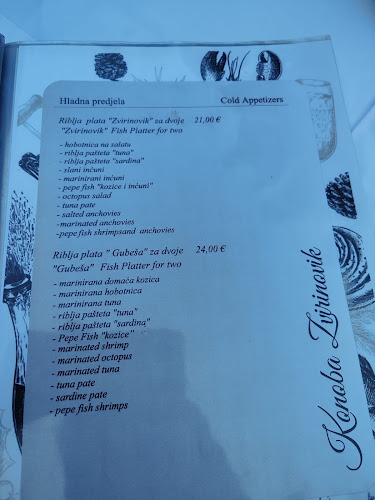 Hladna predjela Cold Appetizers
Riblja plata "Zvirinovik" za dvoje 21,00 €
"Zvirinovik" Fish Platter for two
- hobotnica na salatu
- riblja pašteta "tuna"
- riblja pašteta "sardina"
- slani inćuni
- marinirani inćuni
- pepe fish "kozice i inćuni"
- octopus salad
- tuna pate
- salted anchovies
-marinated anchovies
-pepe fish shrimpsand anchovies
Riblja plata " Gubeša" za dvoje 24,00 €
"Gubeša" Fish Platter for two
- marinirana domaća kozica
- marinirana hobotnica
- marinirana tuna
- riblja pašteta "tuna"
- riblja pašteta "sardina"
- Pepe Fish "kozice"
- marinated shrimp
- marinated octopus
- marinated tuna
- tuna pate
- sardine pate
- pepe fish shrimps
Konoba Zvirinovik